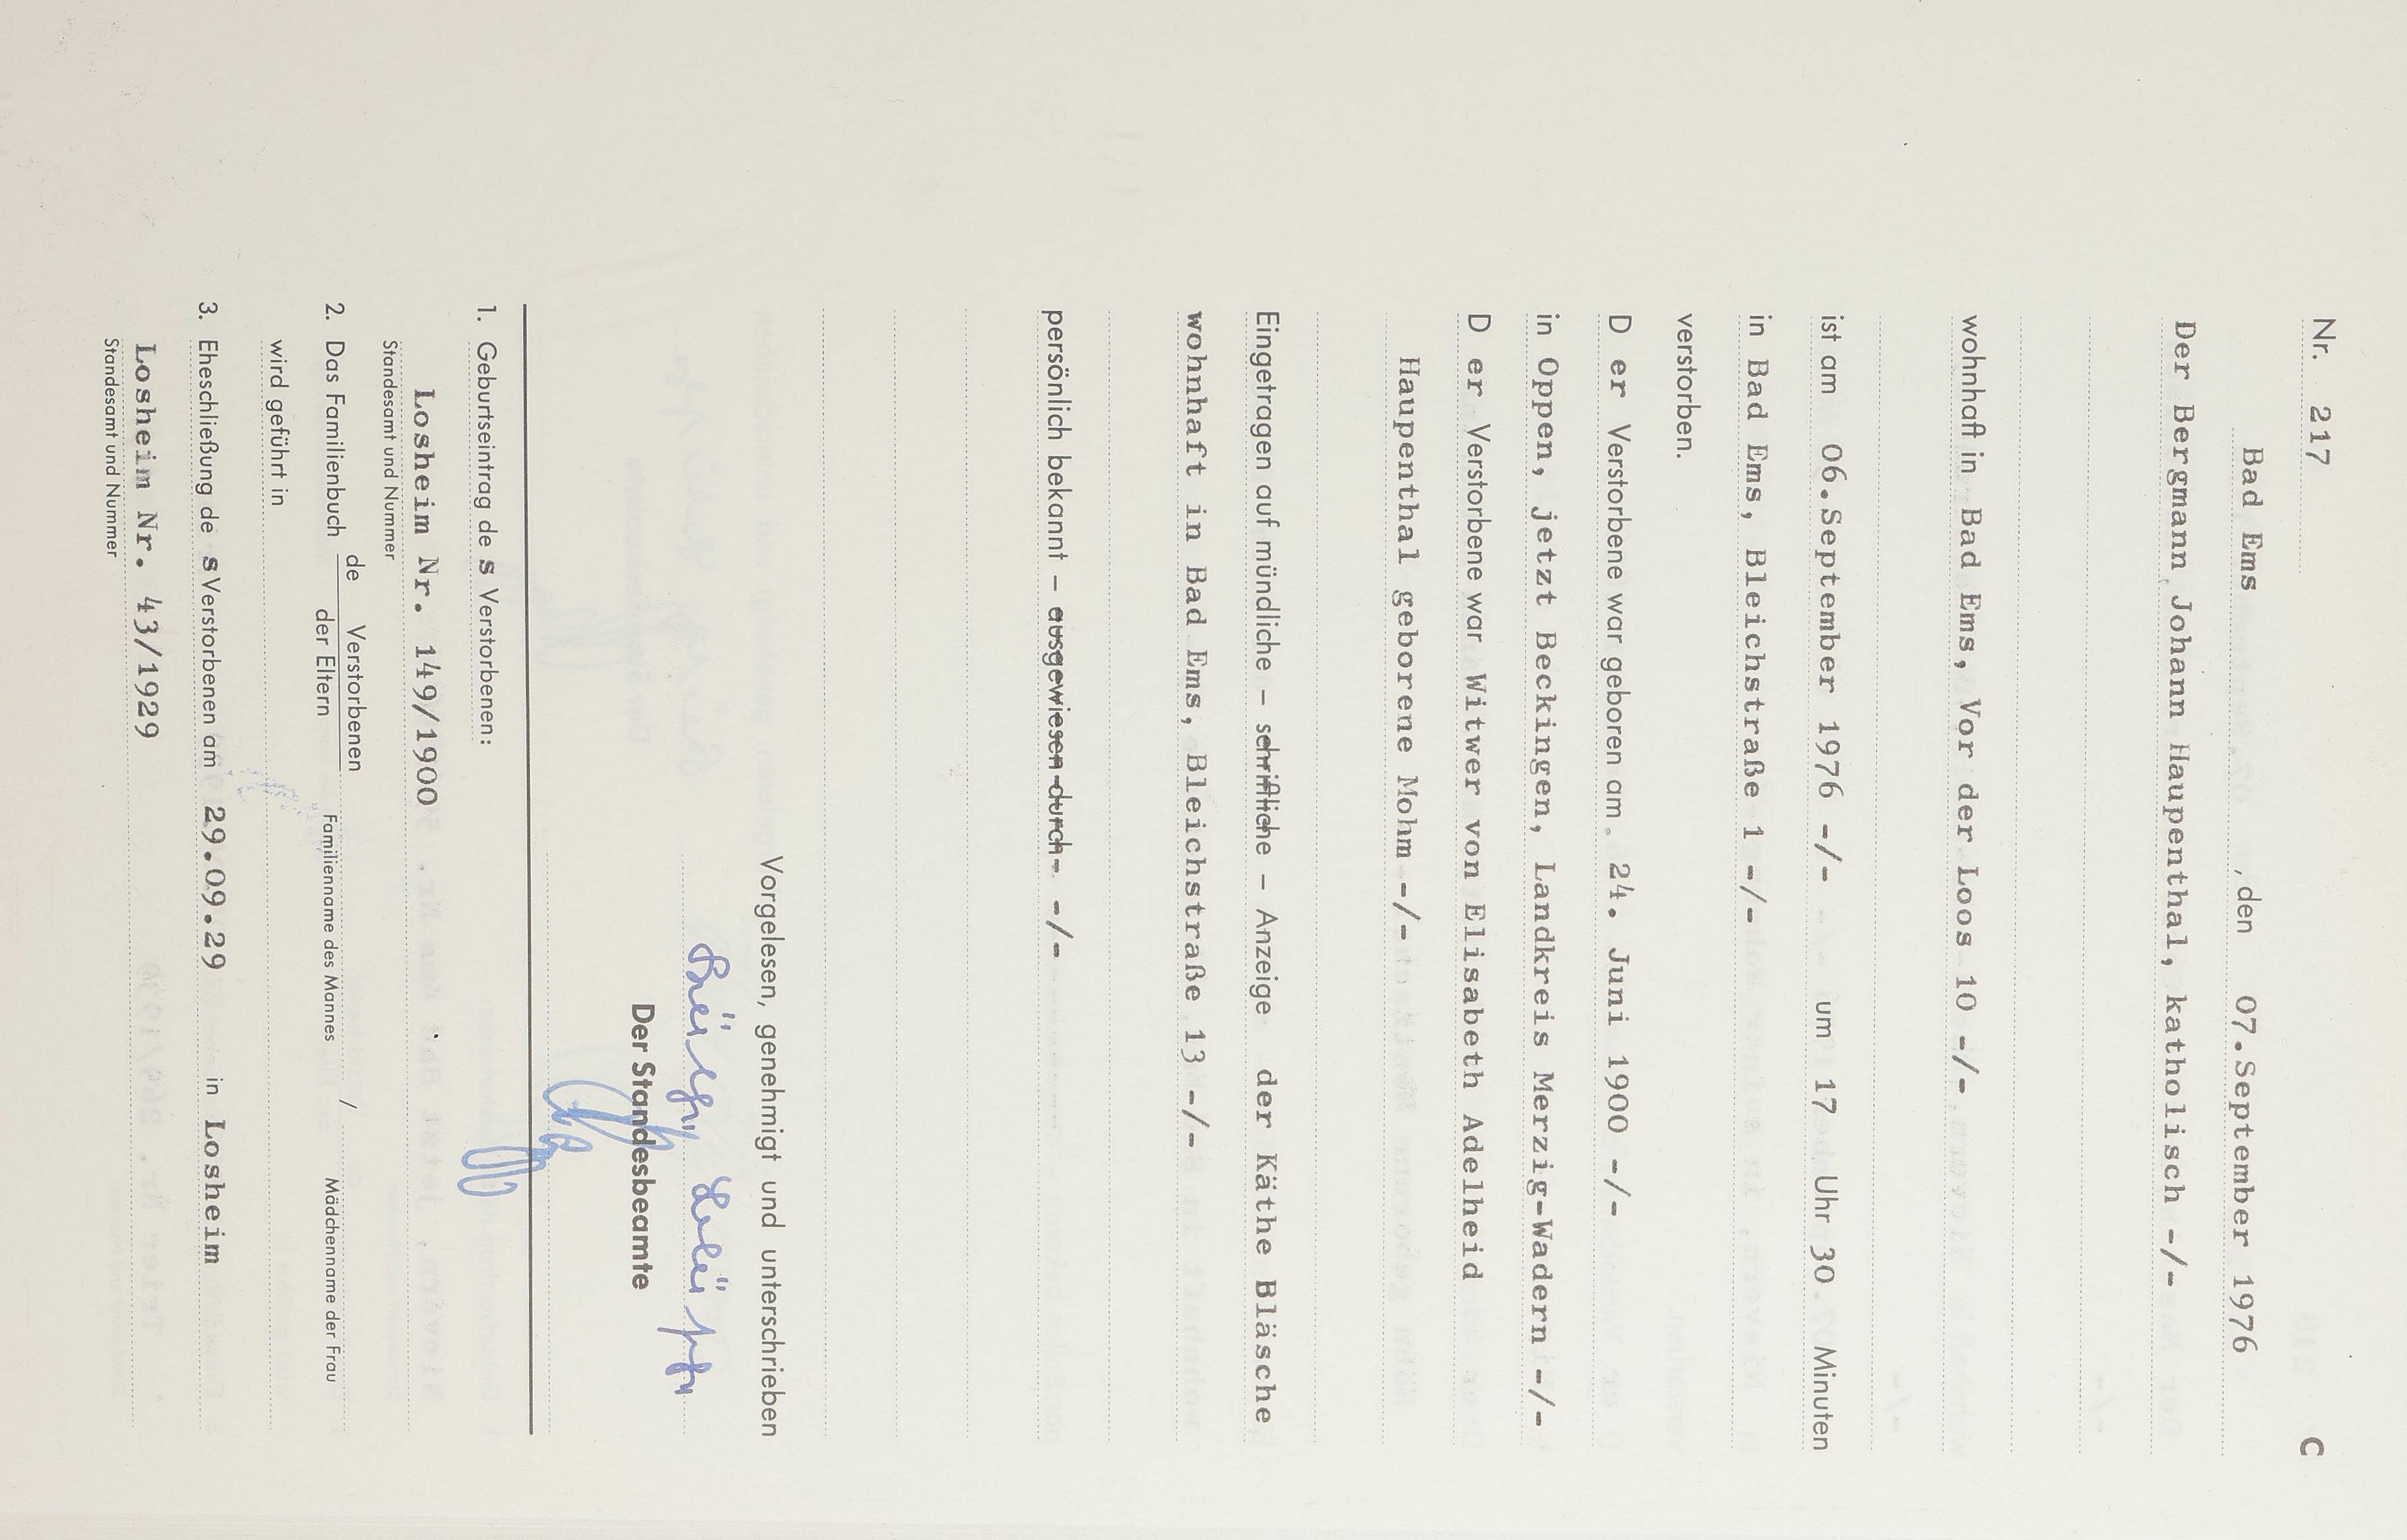 Nr. 217 C
Bad Ems , den 07.September 1976
Der Bergmann Johann Haupenthal, katholisch -/-
wohnhaft in Bad Ems, Vor der Loos 10 -/-
ist am 06.September 1976 -/- um 17 Uhr 30 Minuten
in Bad Ems, Bleichstraße 1 -/-
verstorben.
D er Verstorbene war geboren am 24. Juni 1900 -/-
in Oppen, jetzt Beckingen, Landkreis Merzig-Wadern -/-
D er Verstorbene war Witwer von Elisabeth Adelheid
Haupenthal geborene Mohm -/-
Eingetragen auf mündliche – schriftliche – Anzeige der Käthe Bläsche
wohnhaft in Bad Ems, Bleichstraße 13 -/-
persönlich bekannt – ausgewiesen durch- -/-
Vorgelesen, genehmigt und unterschrieben
Der Standesbeamte
1. Geburtseintrag de s Verstorbenen:
Losheim Nr. 149/1900
Standesamt und Nummer
2. Das Familienbuch de Verstorbenen / der Eltern
Familienname des Mannes Mädchenname der Frau
wird geführt in
3. Eheschließung de s Verstorbenen am 29.09.29 in Losheim
Losheim Nr. 43/1929
Standesamt und Nummer